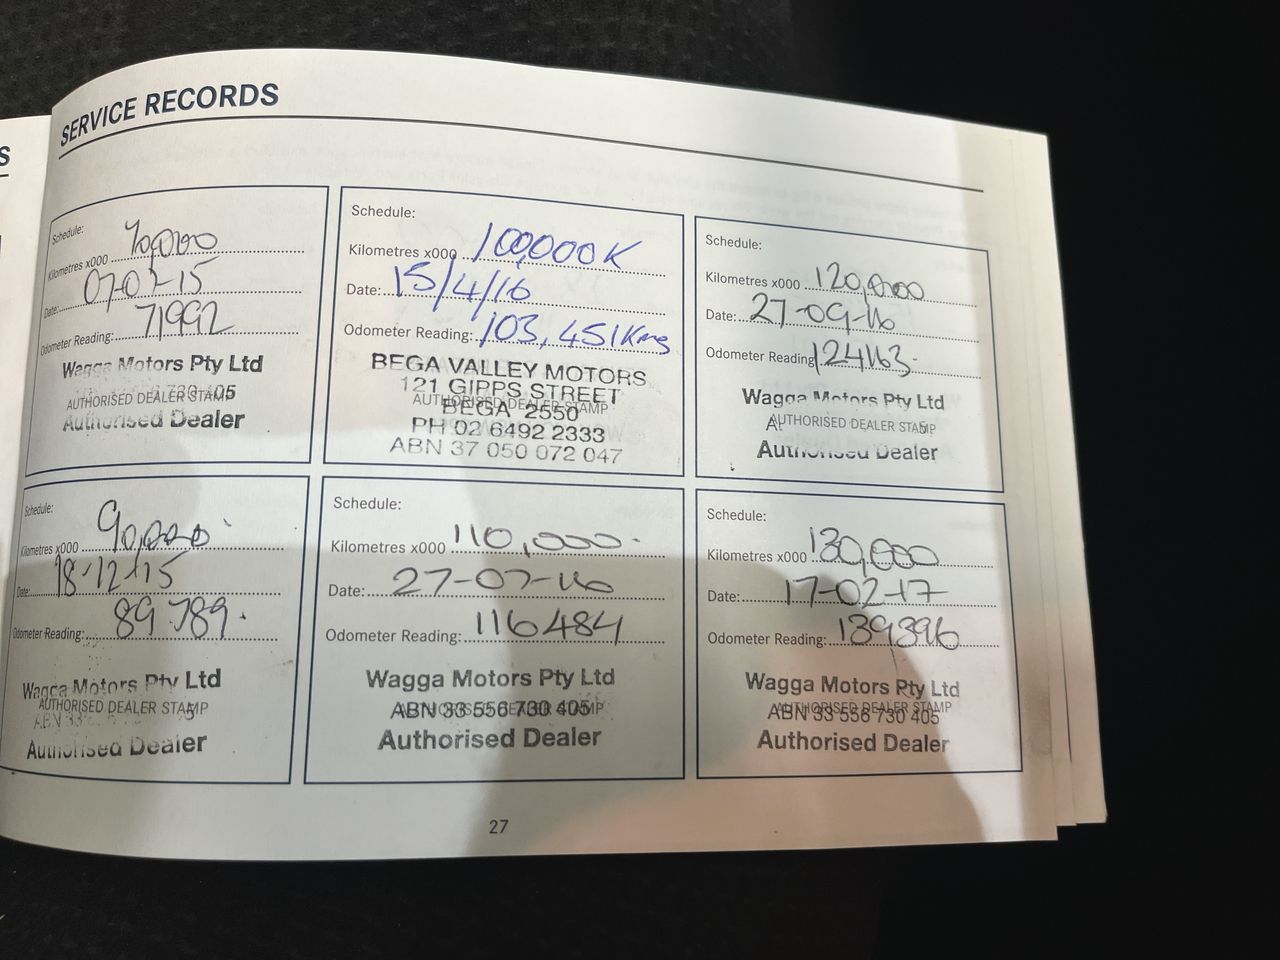 S
SERVICE RECORDS
Schedule:
Kilometres x000 70,000
Date: 07-07-15
Odometer Reading: 71992
Wagga Motors Pty Ltd
730 405
AUTHORISED DEALER STAMP
Authorised Dealer
Schedule:
Kilometres x000 100,000K
Date: 15/4/16
Odometer Reading: 103,451Kms
BEGA VALLEY MOTORS
121 GIPPS STREET
AUTHORISED DEALER STAMP
BEGA 2550
PH 02 6492 2333
ABN 37 050 072 047
Schedule:
Kilometres x000 120,000
Date: 27-09-16
Odometer Reading 124163
Wagga Motors Pty Ltd
AUTHORISED DEALER STAMP
Authorised Dealer
Schedule:
Kilometres x000 90,000
Date: 18-12-15
Odometer Reading: 89789
Wagga Motors Pty Ltd
AUTHORISED DEALER STAMP
ABN 33 5
Authorised Dealer
Schedule:
Kilometres x000 110,000
Date: 27-07-16
Odometer Reading: 116484
Wagga Motors Pty Ltd
AUTHORISED DEALER STAMP
ABN 33 556 730 405
Authorised Dealer
Schedule:
Kilometres x000 130,000
Date: 17-02-17
Odometer Reading: 139396
Wagga Motors Pty Ltd
AUTHORISED DEALER STAMP
ABN 33 556 730 405
Authorised Dealer
27